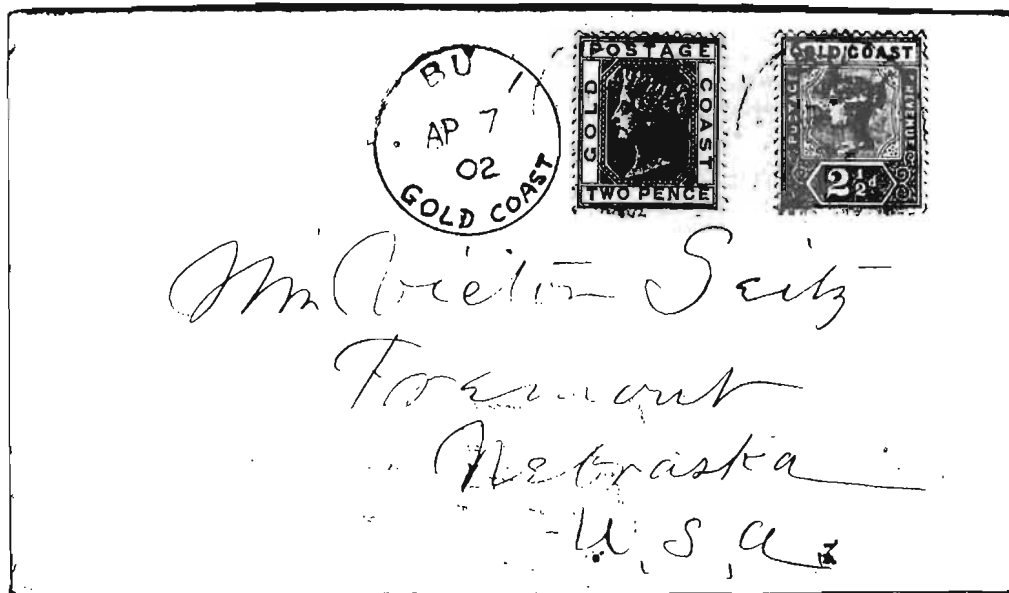 BU
AP 7
02
GOLD COAST
POSTAGE
GOLD
COAST
TWO PENCE
GOLD COAST
POSTAGE
REVENUE
2½d
Mr Victor Seitz
Fremont
Nebraska
U.S.A.